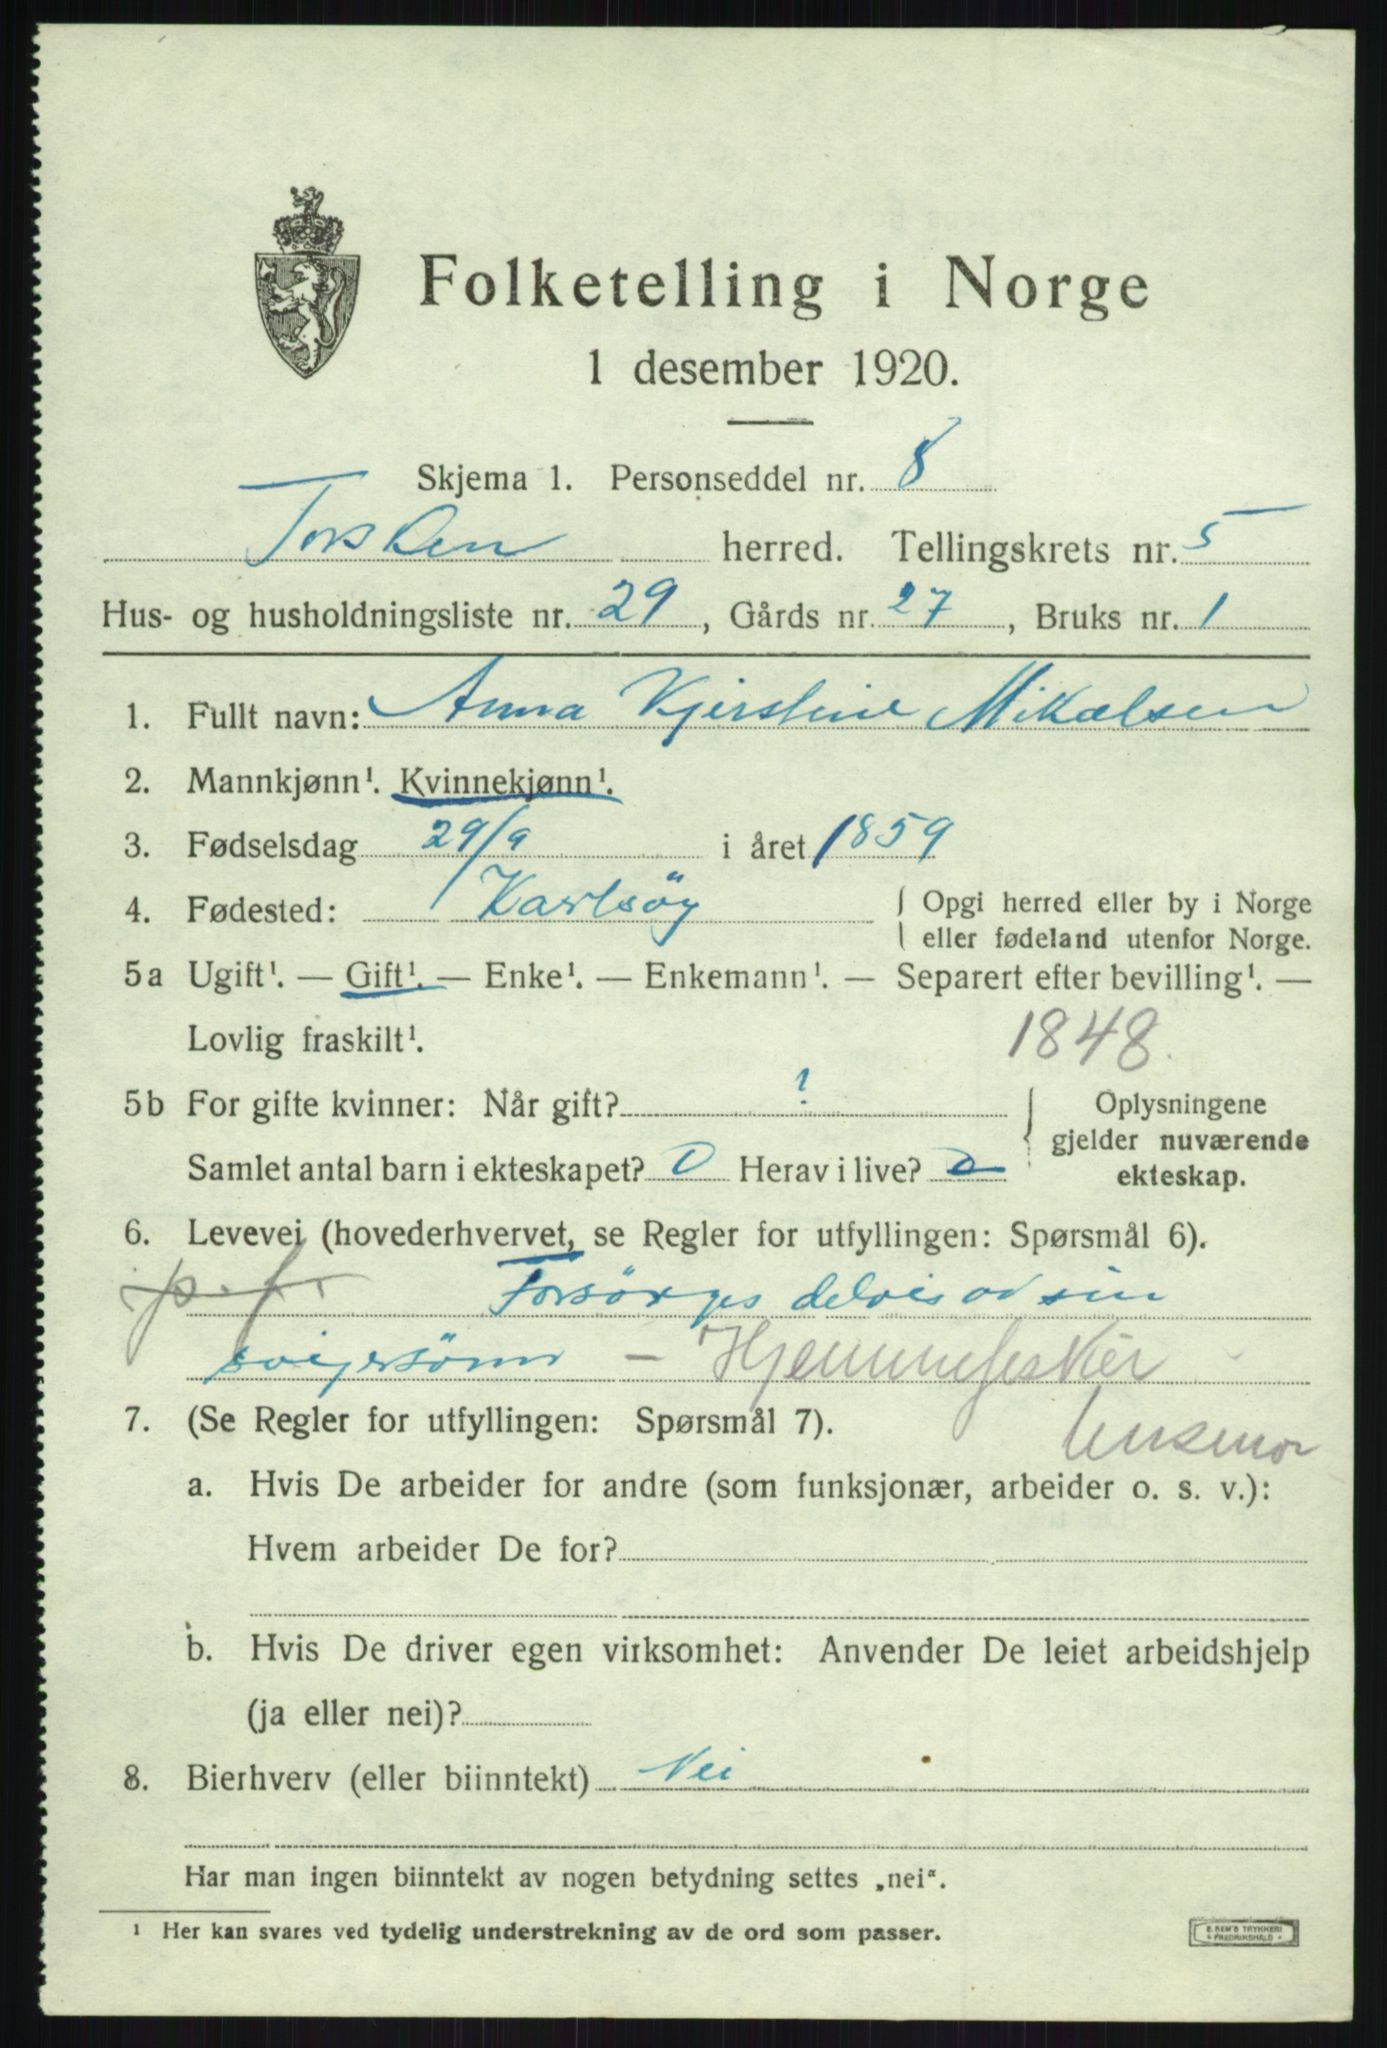 Folketelling i Norge
1 desember 1920.
Skjema 1. Personseddel nr. 8
Torsken herred. Tellingskrets nr. 5
Hus- og husholdningsliste nr. 29, Gårds nr. 27, Bruks nr. 1
1. Fullt navn: Anna Kjerstine Mikalsen
2. Mannkjønn¹. Kvinnekjønn¹.
3. Fødselsdag 29/9 i året 1859
4. Fødested: Karlsöy { Opgi herred eller by i Norge
eller fødeland utenfor Norge.
5a Ugift¹. — Gift¹. — Enke¹. — Enkemann¹. — Separert efter bevilling¹. —
Lovlig fraskilt¹. 1848.
5b For gifte kvinner: Når gift? ? } Oplysningene
gjelder nuværende
Samlet antal barn i ekteskapet? 0 Herav i live? 0 ekteskap.
6. Levevei (hovederhvervet, se Regler for utfyllingen: Spørsmål 6).
p.f. Forsörges delvis av sin
svigersönn – Hjemmefisker
7. (Se Regler for utfyllingen: Spørsmål 7).
a. Hvis De arbeider for andre (som funksjonær, arbeider o. s. v.):
Hvem arbeider De for?
b. Hvis De driver egen virksomhet: Anvender De leiet arbeidshjelp
(ja eller nei)?
8. Bierhverv (eller biinntekt) Nei
Har man ingen biinntekt av nogen betydning settes „nei“.
¹ Her kan svares ved tydelig understrekning av de ord som passer.
E. SEM'S TRYKKERI
FREDRIKSHALD